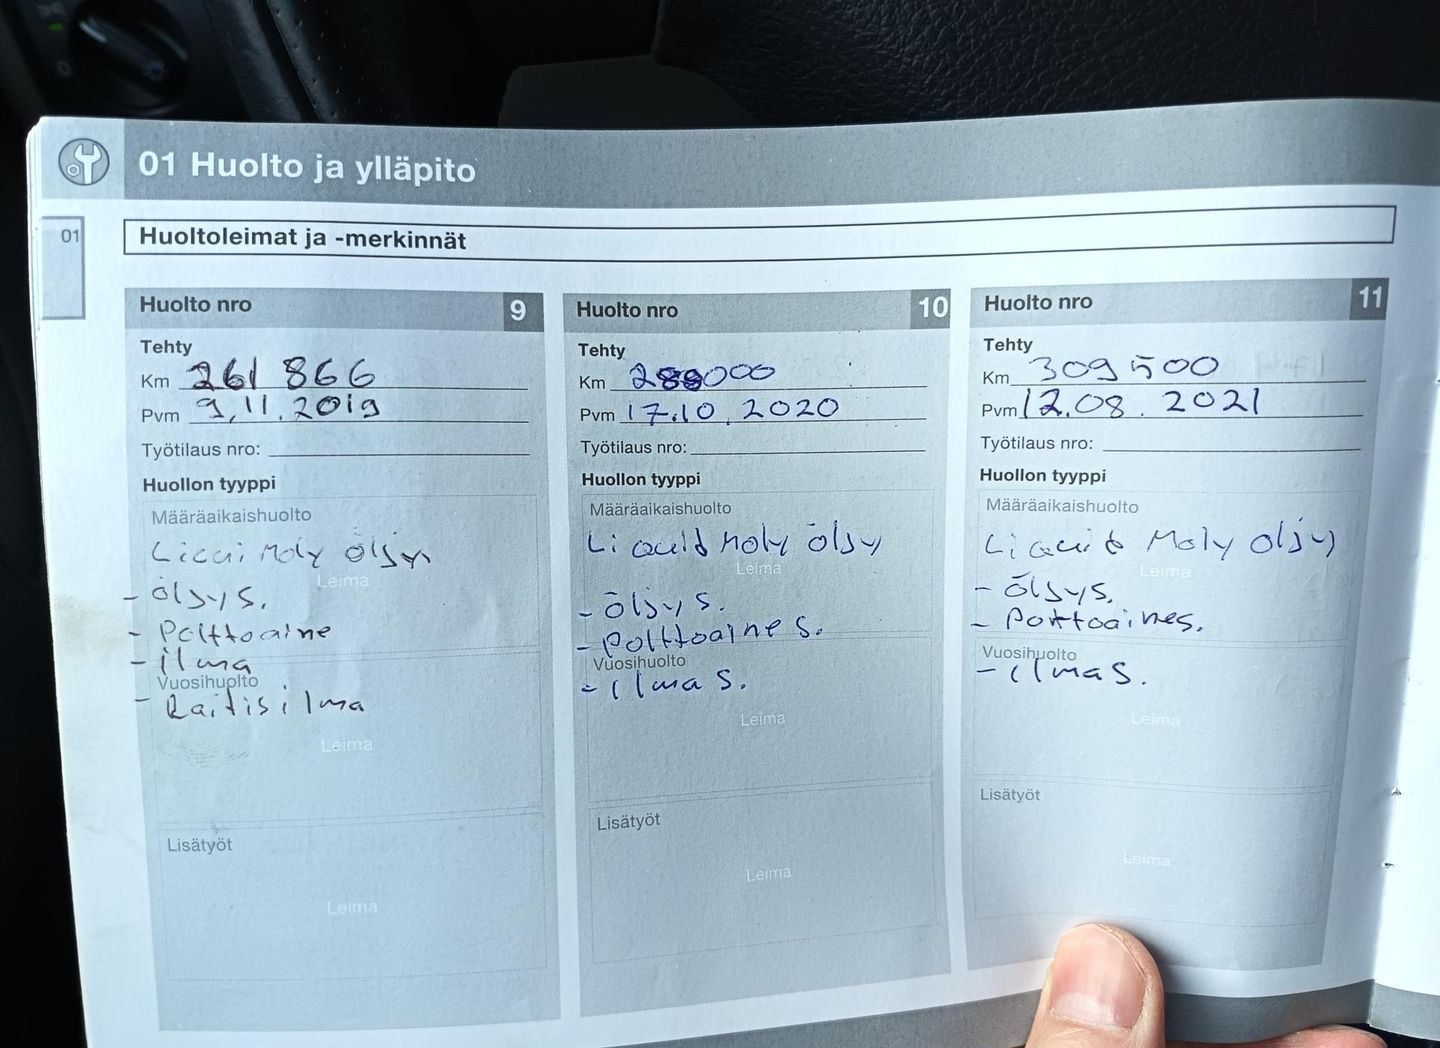 01 Huolto ja ylläpito
01
Huoltoleimat ja -merkinnät
Huolto nro 9
Tehty
Km 261 866
Pvm 9.11.2019
Työtilaus nro:
Huollon tyyppi
Määräaikaishuolto
Liqui Moly öljy
Leima
- öljys.
- Polttoaine
- ilma
Vuosihuolto
- Raitisilma
Leima
Lisätyöt
Leima
Huolto nro 10
Tehty
Km 288000
Pvm 17.10.2020
Työtilaus nro:
Huollon tyyppi
Määräaikaishuolto
Liquid Moly öljy
Leima
- öljys.
- Polttoaines.
Vuosihuolto
- ilmas.
Leima
Lisätyöt
Leima
Huolto nro 11
Tehty
Km 309 500
Pvm 12.08.2021
Työtilaus nro:
Huollon tyyppi
Määräaikaishuolto
Liquid Moly öljy
Leima
- öljys.
- Polttoaines.
Vuosihuolto
- ilmas.
Leima
Lisätyöt
Leima